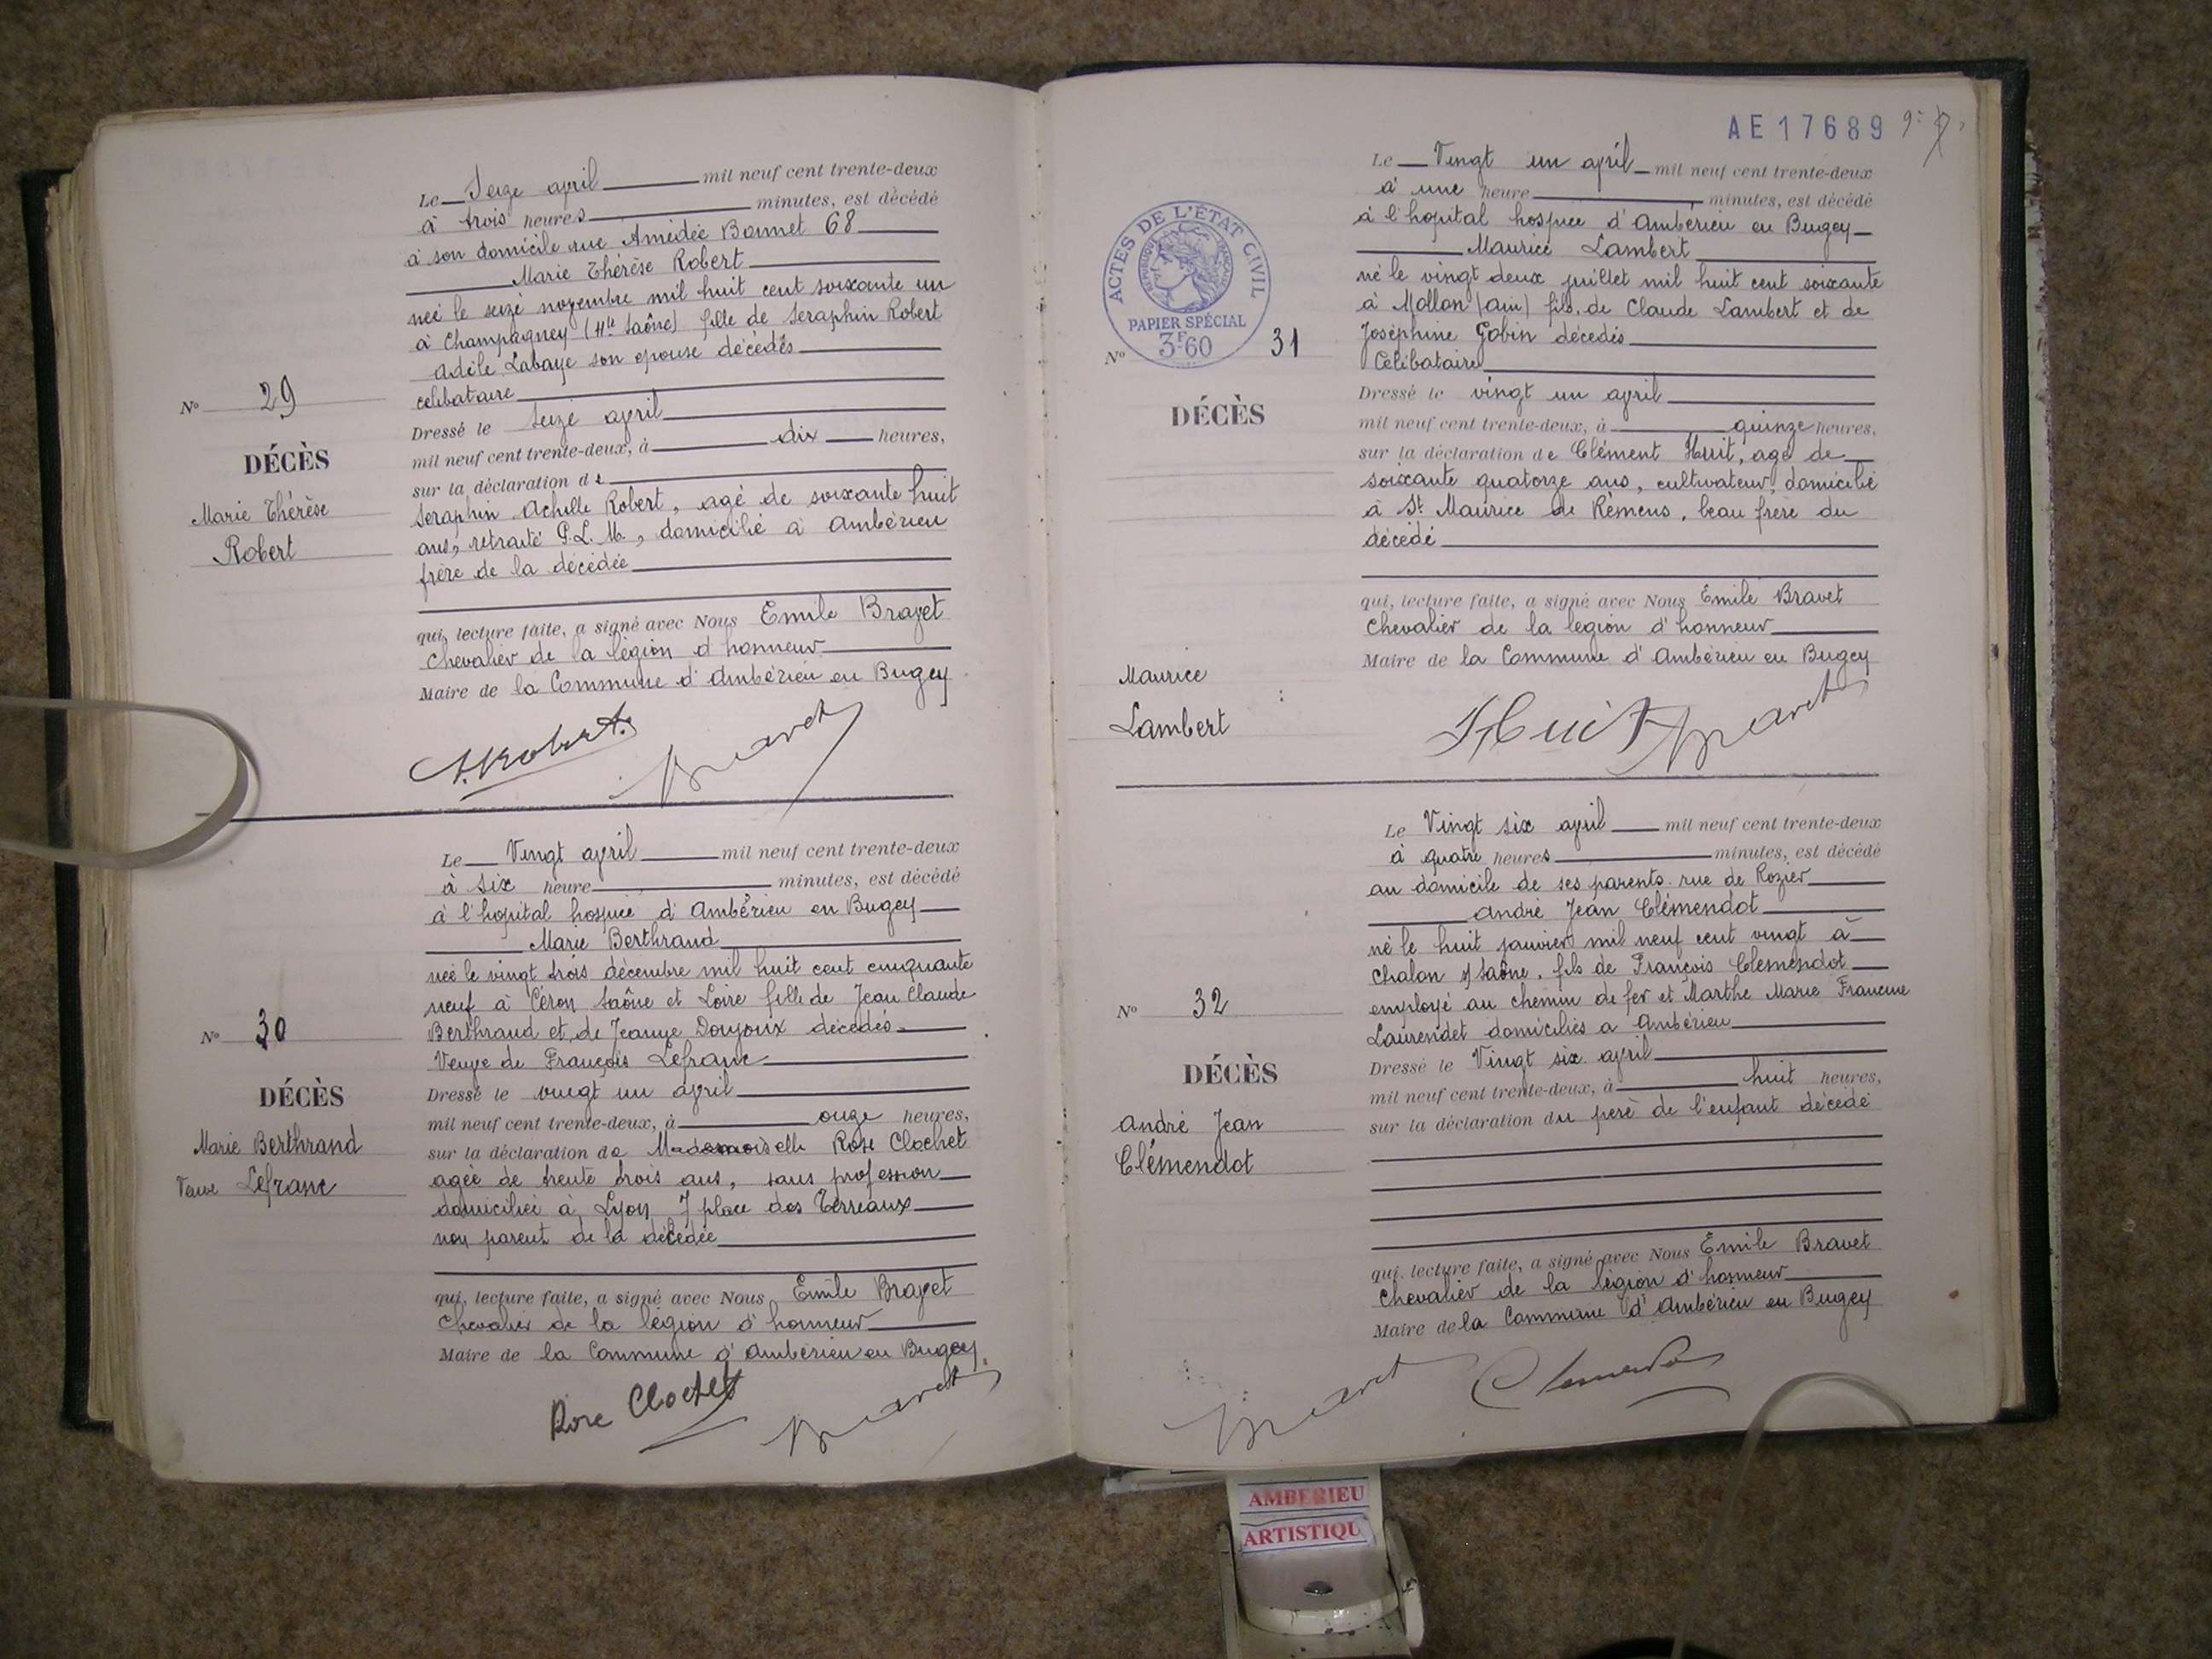 Le Seize avril mil neuf cent trente-deux
à trois heures minutes, est décédé
à son domicile rue Amédée Bonnet 68
Marie Thérèse Robert
née le seize novembre mil huit cent soixante un
à Champagney (Hte Saône) fille de Seraphin Robert
Adèle Labaye son epouse décédés
celibataire
Dressé le Seize avril
mil neuf cent trente-deux, à dix heures,
sur la déclaration de
Seraphin Achille Robert, agé de soixante huit
ans, retraité P.L.M., domicilié à Ambérieu
frère de la décédée
qui, lecture faite, a signé avec Nous Emile Bravet
Chevalier de la légion d'honneur
Maire de la Commune d'Ambérieu en Bugey
N° 29
DÉCÈS
Marie Thérèse
Robert
A. Robert
Bravet
Le Vingt avril mil neuf cent trente-deux
à six heure minutes, est décédé
à l'hopital hospice d'Ambérieu en Bugey
Marie Berthraud
née le vingt trois décembre mil huit cent cinquante
neuf à Céron Saône et Loire fille de Jean Claude
Berthraud et de Jeanne Doujoux décédés
Veuve de François Lefranc
Dressé le vingt un avril
mil neuf cent trente-deux, à onze heures,
sur la déclaration de Mademoiselle Rose Clochet
agée de trente trois ans, sans profession
domiciliée à Lyon 7 place des Terreaux
non parent de la décédée
qui, lecture faite, a signé avec Nous Emile Bravet
Chevalier de la légion d'honneur
Maire de la Commune d'Ambérieu en Bugey
N° 30
DÉCÈS
Marie Berthraud
Veuve Lefranc
Rose Clochet
Bravet
AE17689
Le Vingt un avril mil neuf cent trente-deux
à une heure minutes, est décédé
à l'hopital hospice d'Ambérieu en Bugey
Maurice Lambert
né le vingt deux juillet mil huit cent soixante
à Mollon (Ain) fils de Claude Lambert et de
Joséphine Gobin décédés
Célibataire
Dressé le vingt un avril
mil neuf cent trente-deux, à quinze heures,
sur la déclaration de Clément Huit, agé de
soixante quatorze ans, cultivateur, domicilié
à St Maurice de Rémens, beau frère du
décédé
qui, lecture faite, a signé avec Nous Emile Bravet
Chevalier de la légion d'honneur
Maire de la Commune d'Ambérieu en Bugey
ACTES DE L'ÉTAT CIVIL
RÉPUBLIQUE FRANÇAISE
PAPIER SPÉCIAL
3F60
N° 31
DÉCÈS
Maurice
Lambert
Huit
Bravet
Le Vingt six avril mil neuf cent trente-deux
à quatre heures minutes, est décédé
au domicile de ses parents rue de Rozier
André Jean Clémendot
né le huit janvier mil neuf cent vingt à
Chalon s/Saône, fils de François Clemendot
employé au chemin de fer et Marthe Marie Francine
Laurendet domiciliés a Ambérieu
Dressé le Vingt six avril
mil neuf cent trente-deux, à huit heures,
sur la déclaration du père de l'enfant décédé
qui, lecture faite, a signé avec Nous Emile Bravet
Chevalier de la légion d'honneur
Maire de la Commune d'Ambérieu en Bugey
N° 32
DÉCÈS
André Jean
Clémendot
Bravet
Clemendot
AMBERIEU
ARTISTIQU